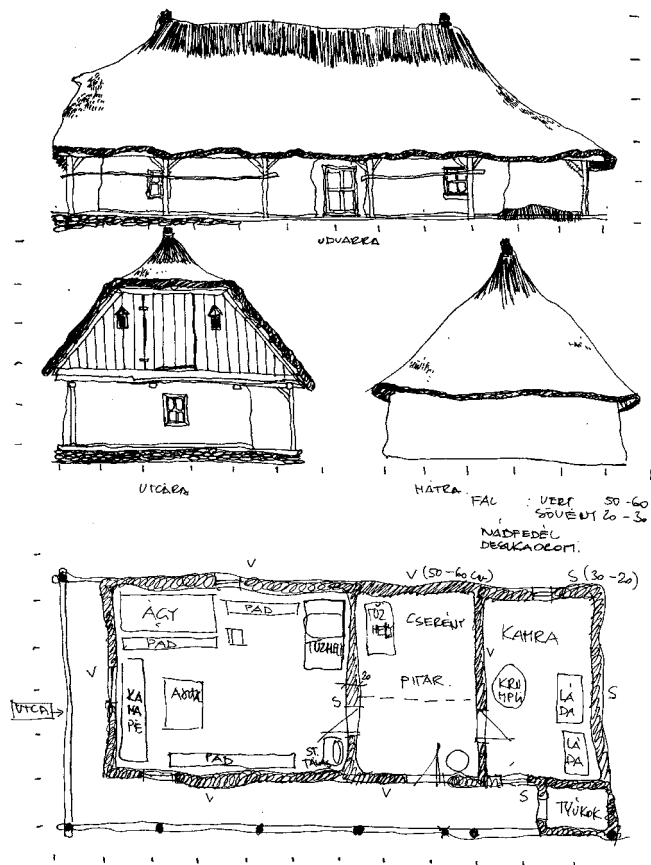 UDVARRA
UTCÁRA
HÁTRA
FAL : VERT 50-60
SÖVÉNY 20-30
NÁDFEDÉL
DESZKAOROM.
V
V (50-60 cm)
S (30-20)
ÁGY
PAD
PAD
TŰZHELY
TŰZHELY
CSERÉNY
KAMRA
V
V
UTCA
KANAPÉ
20
S
PITAR.
KRUMPLI
LÁDA
S
PAD
LÁDA
V
V
S
TYÚKOK